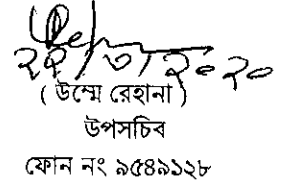 ২২/৩/২০২০
( উম্মে রেহানা )
উপসচিব
ফোন নং ৯৫৪৯১২৮